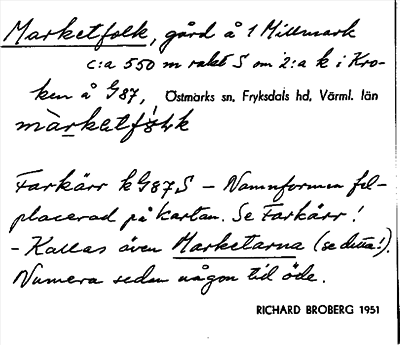 Marketfolk, gård å 1 Millmark
c:a 550 m rakt S om 2:a k i Kro-
ken å G87, Östmarks sn, Fryksdals hd, Värml. län
màrketfólk
Farkärr k G87 S – Namnformen fel-
placerad på kartan. Se Farkärr!
- Kallas även Marketarna (se detta!).
Numera sedan någon tid öde.
RICHARD BROBERG 1951